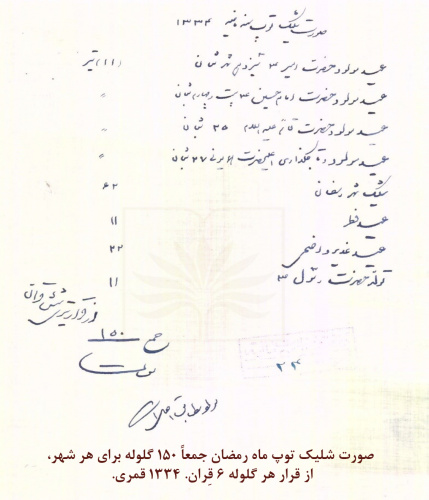 صورت شلیک توپ سنه ماضیه ۱۳۳۴
عید مولود حضرت امیر ۳ سیزدهم شهر شعبان (۱۱) تیر
عید مولود حضرت امام حسین شعبان "
عید مولود حضرت قائم علیه السلام شعبان "
عید مولود و تاجگذاری اعلیحضرت ۲۷ شعبان "
شلیک شهر رمضان ۶۲
عید فطر ۱۱
عید غدیر و اضحی ۲۲
تولد حضرت رسول ۳ ۱۱
از قرار تیری شش قران
جمع ۱۵۰
۲۴
صورت شلیک توپ ماه رمضان جمعاً ۱۵۰ گلوله برای هر شهر،
از قرار هر گلوله ۶ قِران. ۱۳۳۴ قمری.